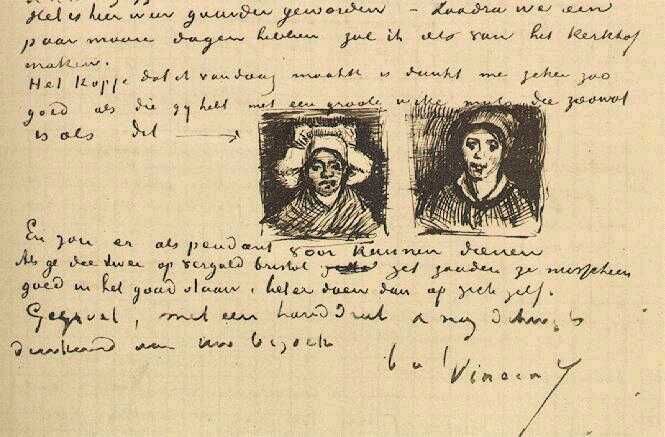 Het is hier weer guurder geworden – Zoodra we een
paar mooie dagen hebben zal ik iets van het kerkhof
maken.
Het kopje dat ik vandaag maakte is dunkt me zeker zoo
goed als die gij hebt met een groote witte muts die zoowat
is als dit
En zou er als pendant voor kunnen dienen
Als ge die twee op verguld bristol zet zouden ze misschien
goed in het goud staan, beter doen dan op zich zelf.
Gegroet, met een handdruk & nog dikwijls
denkend aan uw bezoek
Vincent